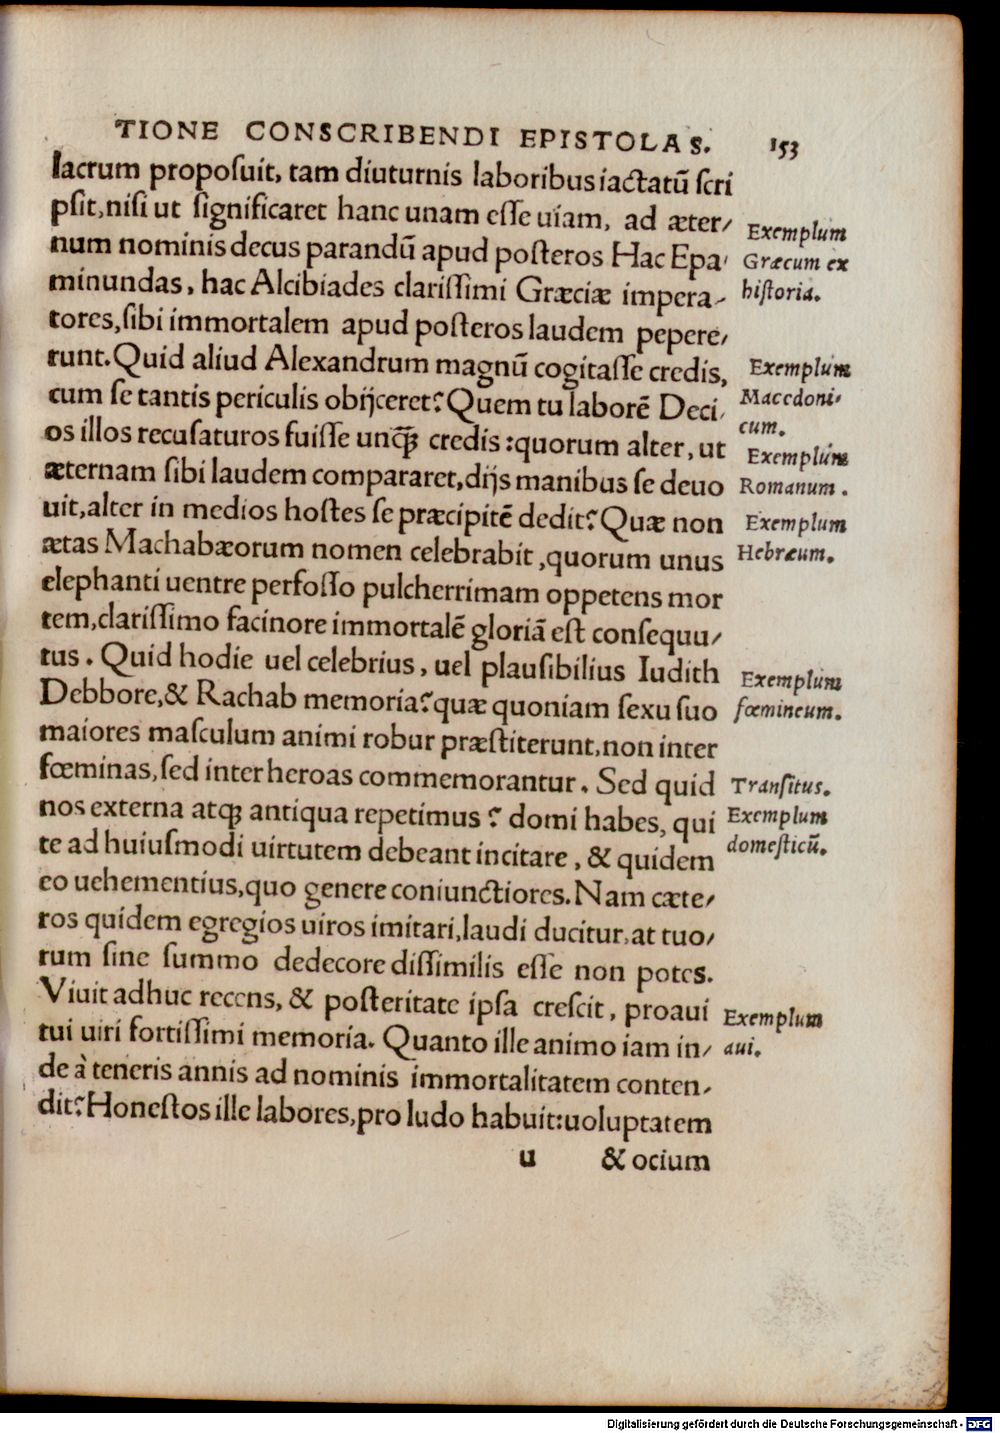 TIONE CONSCRIBENDI EPISTOLAS. 153
lacrum proposuit, tam diuturnis laboribus iactatū scri
psit, nisi ut significaret hanc unam esse uiam, ad æter/
num nominis decus parandū apud posteros Hac Epa/
minundas, hac Alcibiades clarissimi Græciæ impera-
tores, sibi immortalem apud posteros laudem pepere/
runt. Quid aliud Alexandrum magnū cogitasse credis,
cum se tantis periculis obijceret? Quem tu laborē Deci/
os illos recusaturos fuisse unq̃ȝ credis: quorum alter, ut
æternam sibi laudem compararet, dijs manibus se deuo
uit, alter in medios hostes se præcipitē dedit? Quæ non
ætas Machabæorum nomen celebrabit, quorum unus
elephanti uentre perfosso pulcherrimam oppetens mor
tem, clarissimo facinore immortalē gloriā est consequu/
tus. Quid hodie uel celebrius, uel plausibilius Iudith
Debbore, & Rachab memoria? quæ quoniam sexu suo
maiores masculum animi robur præstiterunt, non inter
fœminas, sed inter heroas commemorantur. Sed quid
nos externa atqȝ antiqua repetimus? domi habes, qui
te ad huiusmodi uirtutem debeant incitare, & quidem
eo uehementius, quo genere coniunctiores. Nam cæte/
ros quidem egregios uiros imitari, laudi ducitur, at tuo/
rum sine summo dedecore dissimilis esse non potes.
Viuit adhuc recens, & posteritate ipsa crescit, proaui
tui uiri fortissimi memoria. Quanto ille animo iam in/
de à teneris annis ad nominis immortalitatem conten-
dit? Honestos ille labores, pro ludo habuit: uoluptatem
u & ocium
Exemplum
Græcum ex
historia.
Exemplum
Macedoni/
cum.
Exemplum
Romanum.
Exemplum
Hebræum.
Exemplum
fœmineum.
Transitus.
Exemplum
domesticū.
Exemplum
aui.
Digitalisierung gefördert durch die Deutsche Forschungsgemeinschaft - DFG